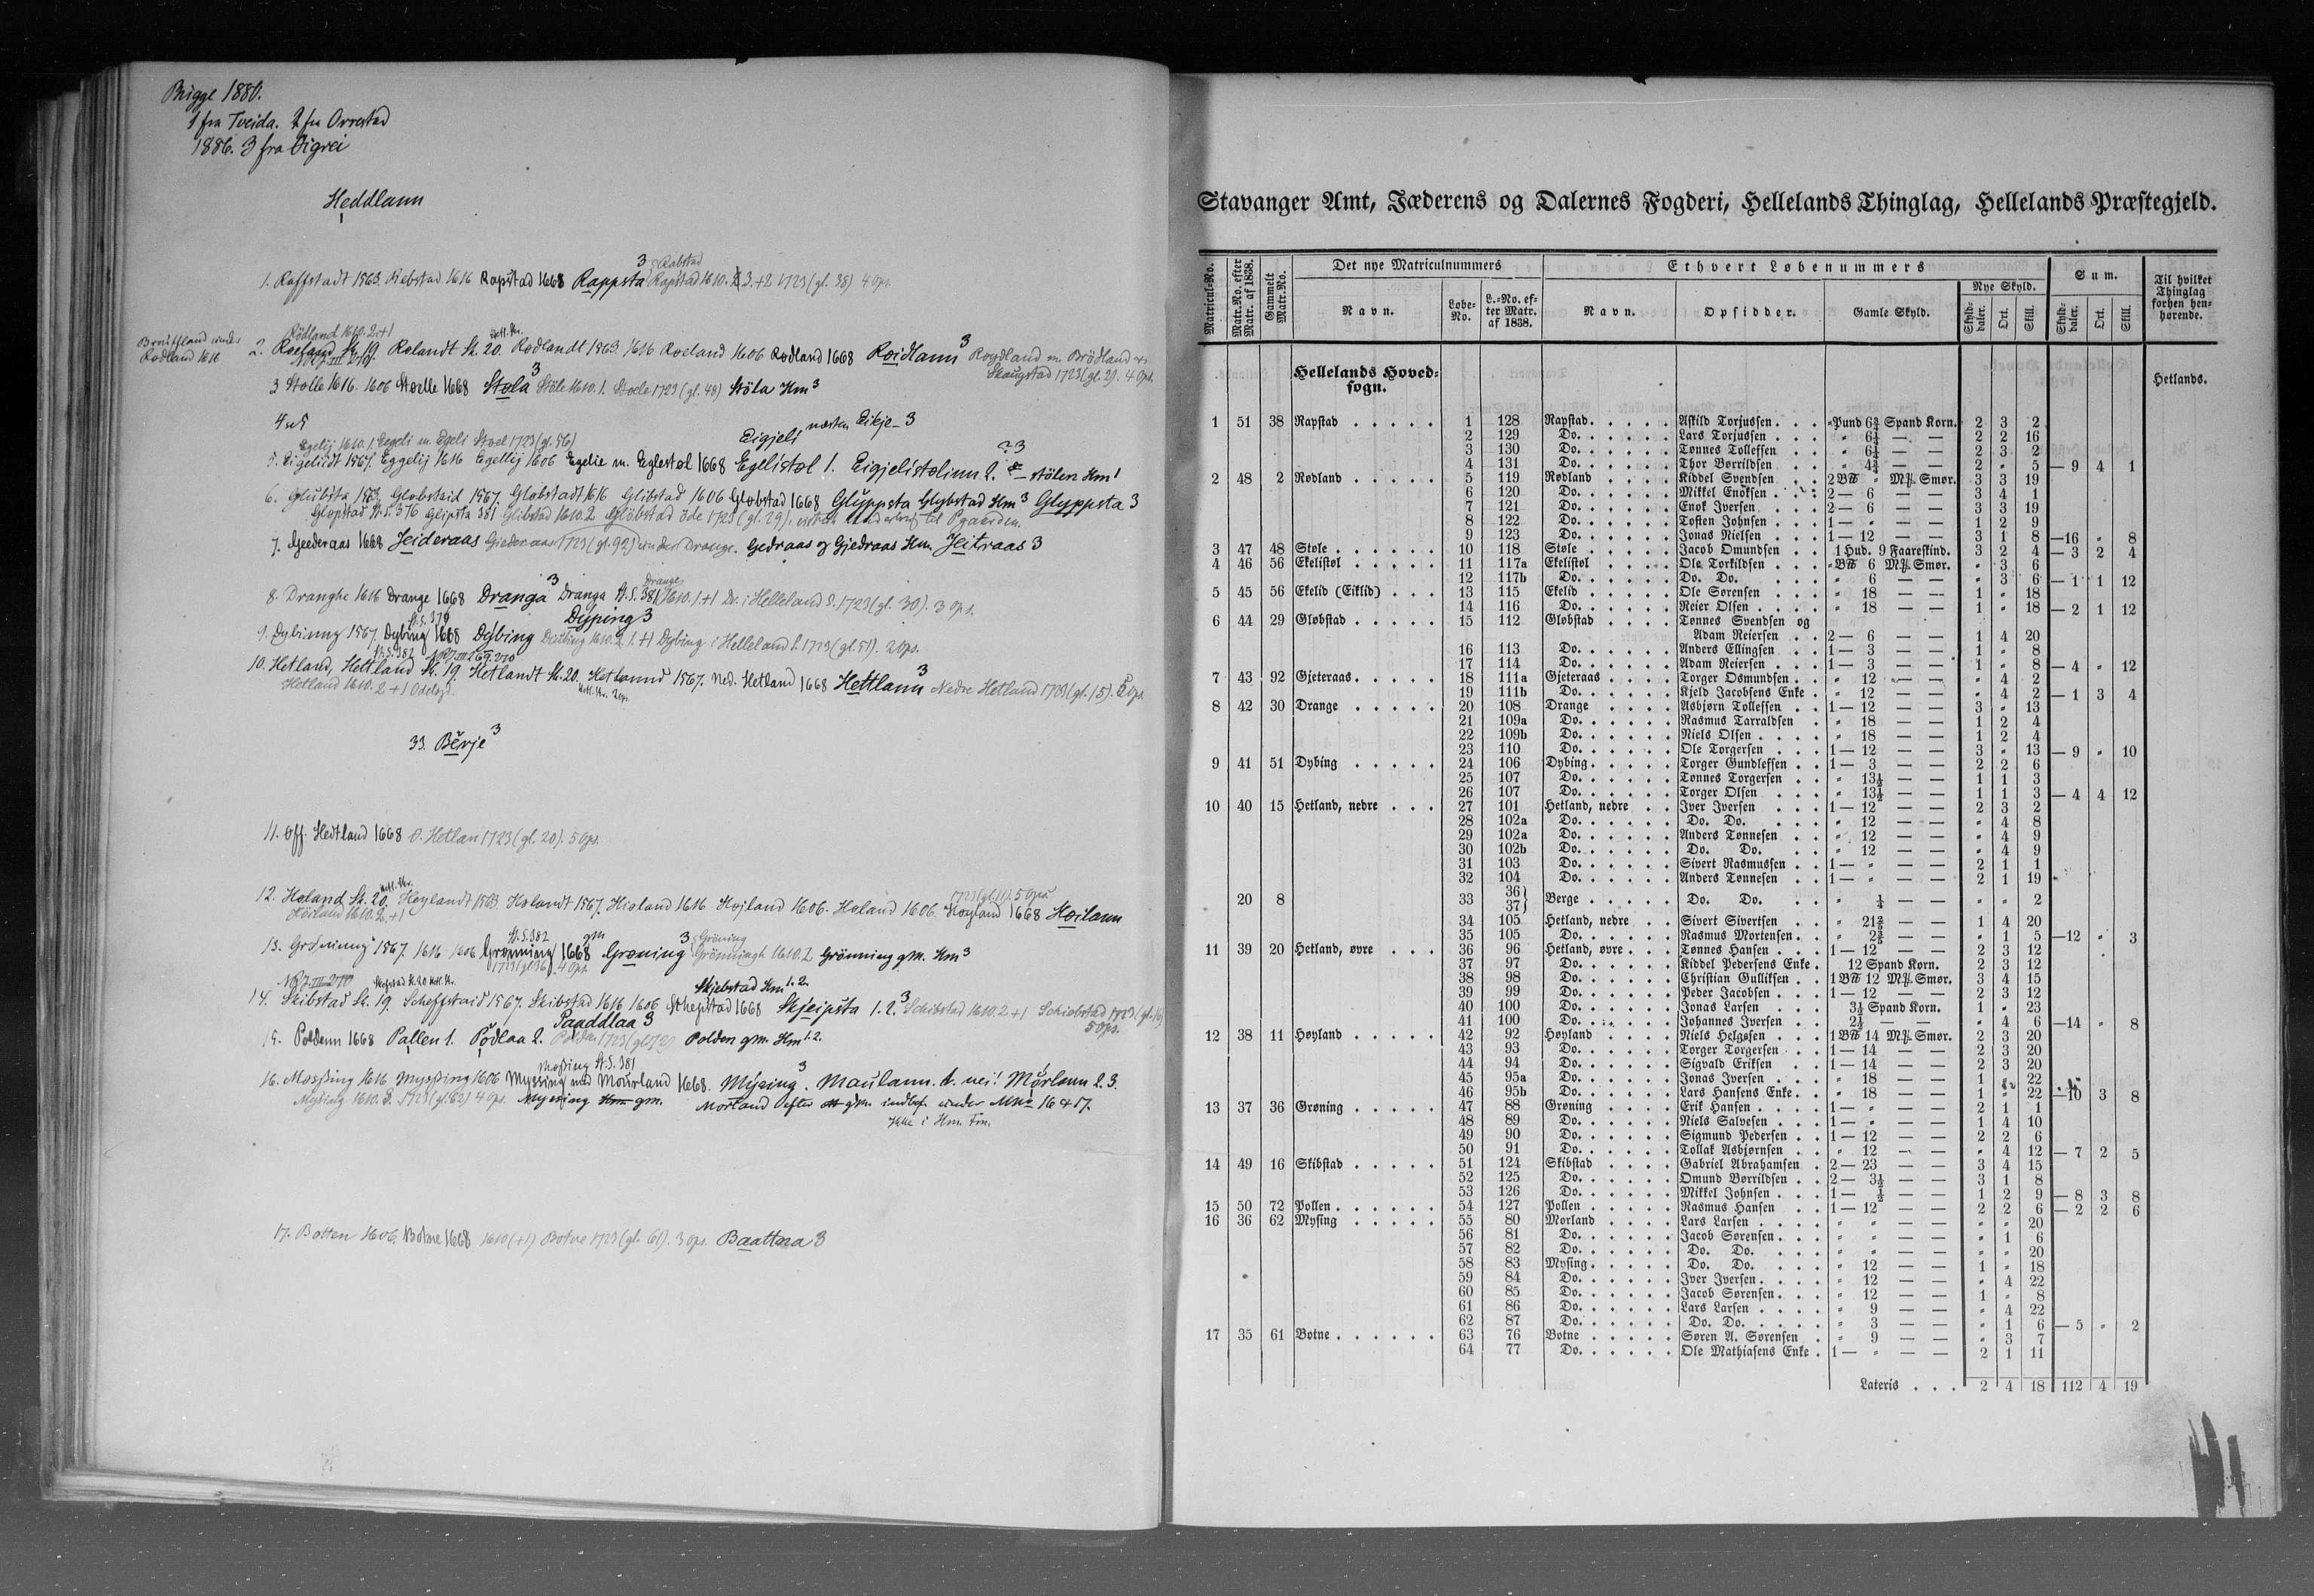 Brigge 1880.
1 fra Tveida. 2 fra Orrestad
1886. 3 fra Eigrei
Heddlann
3 : Rabstad
1. Raffstadt 1563. Rebstad 1616 Rapstad 1668 Rappsta Rapstad 1610. 3.+2 1723 (gl. 38) 4 Ops.
Rødland 1610. 2.+1
Rodland 1616
2. Rolandt Sk. 20. Rodlandt 1563. 1616 Roeland 1606 Rodland 1668 Roidlann 3 Roydland m. Brødland &
Skaugstad 1723 (gl. 2). 4 Ops.
3 Stolle 1616. 1606 Stoelle 1668 Støla 3 Støle 1610. 1. Stoele 1723 (gl. 48) Støla Hm 3
4 & 5
Egelij 1610. 1. Eegeli m. Egeli Støel 1723 (gl. 56)
Eigjeli næsten Eikje- 3
5. Eigeliidt 1567. Eggelij 1616 Egellij 1606 Egelie m. Eglestøl 1668 Egelistøl 1. Eigjelistølinn 2. ? 3 stølen Hm 1
6. Glubsta 1563 Globstaid 1567. Globstadt 1616 Glibstad 1606 Globstad 1668 Gluppsta Glybstad Hm 3 Glyppsta 3
Glopstad St. S. 376 Glipsta 381 Glibstad 1610. 2 Gløbstad öde 1723 (gl. 29),
7. Geederaas 1668 Jeideraas Giederaas 1723 (gl. 92) under Drange. Gedraas og Gjedraas Hm. Jeitraas 3
8. Dranghe 1616 Drange 1668 Dranga 3 Dranga St. S. 381 Drange 1610. 1+1 Do. i Helleland S. 1723 (gl. 30). 3 Ops.
St. S. 379 Dyping 3
9. Dybinng 1567. Dybing 1668 Dybing 1610. 2. 1. +1 Dybing i Helleland S. 1723 (gl. 51). 2 Ops.
St. S. 382
10. Hetland, Hettland Sk. 19. Hetlandt Sk. 20. Hetlannd 1567. Ned. Hetland 1668 Hettlann 3 Nedre Hetland 1723 (gl. 15). Ops.
Hetland 1610. 2 +1 Ødelegd.
33. Berje 3
11. Off. Hedtland 1668 O. Hetlan 1723 (gl. 20). 5 Ops.
12. Høland Sk. 20. Høylandt 1563. Hølandt 1567. Høland 1616 Højland 1606. Høland 1606. Høyland 1668 Høilann
1610. 2. +1
St. S. 382 gm 3 : Grøning
13. Grønning 1567. 1616 1606 Grønning 1668 Grøning Grønningh 1610. 2 Grønning gm. Hm 3
Skjebstad Hm 1. 2.
14. Skibstad Sk. 19. Scheffstaid 1567. Skibstad 1616 1606 Schepstad 1668 Skjeipsta 1. 2. 3 Schibstad 1610. 2+1 Schiebstad 1723 (gl. 16)
5 Ops.
Paaddlaa 3
15. Poldenn 1668 Pallen 1. Pødlaa 2. Polden 1723 (gl. 72) Polden gm. Hm 1. 2.
Mossing St. S. 381
16. Mossing 1616 Myssing 1606 Myssing med Mourland 1668. Mysing 3. Maulann. 1. nei! Mørlann 2. 3.
Mysing 1610. 2. 1723 (gl. 62) 4 Ops. Mysing gm. Morland efter gm. indbef. under MNo 16 & 17.
Ikke i Hm. Fm.
17. Botten 1606. Botne 1668 1610 (+1) Botne 1723 (gl. 61). 3 Ops. Baattna 3
Stavanger Amt, Jæderens og Dalernes Fogderi, Hellelands Thinglag, Hellelands Præstegjeld.
Matricul-No. Matr.No. efter Matr. af 1838. Gammelt Matr.No. Det nye Matriculnummers Ethvert Løbenummers Sum. Til hvilket Thinglag forhen henhørende.
Navn. Løbe-No. L.-No. efter Matr. af 1838. Navn. Opsidder. Gamle Skyld. Nye Skyld. Skylddaler. Ort. Skill. Skylddaler. Ort. Skill.
Hellelands Hovedsogn. Hetlands.
1 51 38 Rapstad 1 128 Rapstad Askild Torjussen "Pund 6¾ Spand Korn. 2 3 2
2 129 Do. Lars Torjussen " 6¼ — — 2 2 16
3 130 Do. Tønnes Tollefsen " 6¼ — — 2 3 2
4 131 Do. Thor Børrildsen " 4¾ — — 2 " 5 — 9 4 1
2 48 2 Rødland 5 119 Rødland Kiddel Svendsen 2 B℔ " M℔ Smør. 3 3 19
6 120 Do. Mikkel Enoksen 2 — 6 — — 3 4 1
7 121 Do. Enok Iversen 2 — 6 — — 3 3 19
8 122 Do. Tosten Johnsen 1 — " — — 1 2 9
9 123 Do. Jonas Nielsen 1 — 12 — — 3 1 8 — 16 " 8
3 47 48 Støle 10 118 Støle Jacob Omundsen 1 Hud. 9 Faareskind. 3 2 4 — 3 2 4
4 46 56 Ekelistøl 11 117a Ekelistøl Ole Torkildsen " B℔ 6 M℔ Smør. " 3 6
12 117b Do. Do. Do. " 6 — — " 3 6 — 1 1 12
5 45 56 Ekelid (Eiklid) 13 115 Ekelid Ole Sørensen " 18 — — 1 " 18
14 116 Do. Reier Olsen " 18 — — 1 " 18 — 2 1 12
6 44 29 Gløbstad 15 112 Gløbstad Tønnes Svendsen og
Adam Reiersen 2 — 6 — — 1 4 20
16 113 Do. Anders Ellingsen 1 — 3 — — 1 " 8
17 114 Do. Adam Reiersen 1 — 3 — — 1 " 8 — 4 " 12
7 43 92 Gjeteraas 18 111a Gjeteraas Torger Osmundsen " 12 — — " 4 2
19 111b Do. Kjeld Jacobsens Enke " 12 — — " 4 2 — 1 3 4
8 42 30 Drange 20 108 Drange Asbjørn Tollefsen 1 — 12 — — 3 " 13
21 109a Do. Rasmus Tarraldsen " 18 — — 1 2 4
22 109b Do. Niels Olsen " 18 — — 1 2 4
23 110 Do. Ole Torgersen 1 — 12 — — 3 " 13 — 9 " 10
9 41 51 Dybing 24 106 Dybing Torger Gundlefsen 1 — 3 — — 2 2 6
25 107 Do. Tønnes Torgersen " 13½ — — 1 1 3
26 107 Do. Torger Olsen " 13½ — — 1 1 3 — 4 4 12
10 40 15 Hetland, nedre 27 101 Hetland, nedre Iver Iversen 1 — 12 — — 2 3 2
28 102a Do. Do. Do. " 12 — — " 4 8
29 102a Do. Anders Tønnesen " 12 — — " 4 9
30 102b Do. Do. Do. " 12 — — " 4 9
31 103 Do. Sivert Rasmussen 1 — " — — 2 1 1
32 104 Do. Anders Tønnesen 1 — " — — 2 1 19
20 8 33 36} 37} Berge Do. Do. " ¼ — — " " 2
34 105 Hetland, nedre Sivert Sivertsen " 21⅗ — — 1 4 20
35 105 Do. Rasmus Mortensen " 2⅖ — — " 1 5 — 12 " 3
11 39 20 Hetland, øvre 36 96 Hetland, øvre Tønnes Hansen 1 — 12 — — 2 3 12
37 97 Do. Kiddel Pedersens Enke 12 Spand Korn. 2 3 12
38 98 Do. Christian Gulliksen 1 B℔ 12 M℔ Smør. 3 4 15
39 99 Do. Peder Jacobsen 1 — 12 — — 2 3 12
40 100 Do. Jonas Larsen 3½ Spand Korn. 1 " 23
41 100 Do. Johannes Iversen 2½ — — " 4 6 — 14 " 8
12 38 11 Høyland 42 92 Høyland Niels Helgesen 1 B℔ 14 M℔ Smør. 2 3 20
43 93 Do. Torger Torgersen 1 — 14 — — 2 3 20
44 94 Do. Sigvald Eriksen 1 — 14 — — 2 3 20
45 95a Do. Jonas Iversen " 18 — — 1 " 22
46 95b Do. Lars Hansens Enke " 18 — — 1 " 22 — 10 3 8
13 37 36 Grøning 47 88 Grøning Erik Hansen 1 — " — — 2 1 1
48 89 Do. Niels Salvesen 1 — " — — 1 4 10
49 90 Do. Sigmund Pedersen 1 — 12 — — 2 2 6
50 91 Do. Tollak Asbjørnsen " 12 — — " 4 12 — 7 2 5
14 49 16 Skibstad 51 124 Skibstad Gabriel Abrahamsen 2 — 23 — — 3 4 15
52 125 Do. Omund Børrildsen 2 — 3½ — — 3 1 8
53 126 Do. Mikkel Johnsen 1 — ½ — — 1 2 9 — 8 3 8
15 50 72 Pollen 54 127 Pollen Rasmus Hansen 1 — 12 — — 2 2 6 — 2 2 6
16 36 62 Mysing 55 80 Morland Lars Larsen " " — — " " 20
56 81 Do. Jacob Sørensen " " — — " 1 6
57 82 Do. Do. Do. " " — — " " 20
58 83 Mysing Do. Do. " 12 — — 1 " 18
59 84 Do. Iver Iversen " 12 — — " 4 22
60 85 Do. Jacob Sørensen " 12 — — 1 " 8
61 86 Do. Lars Larsen " 9 — — " 4 22
62 87 Do. Do. Do. " 3 — — " 1 6 — 5 " 2
17 35 61 Botne 63 76 Botne Søren A. Sørensen " 9 — — " 3 7
64 77 Do. Ole Mathiasens Enke 1 — " — — 2 1 11
Lateris 2 4 18 112 4 19